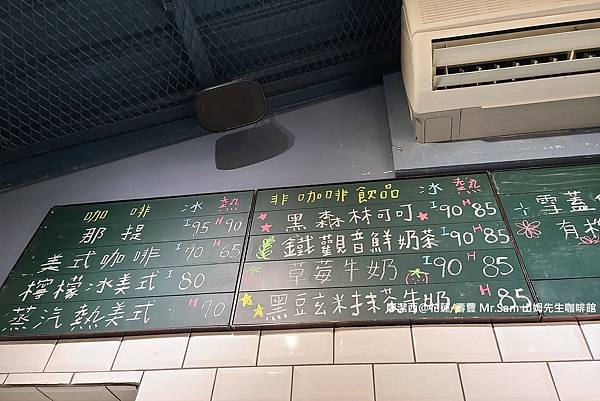 咖啡 冰 熱
那提 I95 H90
美式咖啡 I70 H65
檸檬冰美式 I80
蒸汽熱美式 H70
非咖啡飲品 冰 熱
黑森林可可 I90 H85
鐵觀音鮮奶茶 I90 H85
草莓牛奶 I90 H85
黑豆玄米抹茶牛奶 H85
雪蓋
有機
廖潔西@花蓮/壽豐 Mr.Sam 山姆先生咖啡館